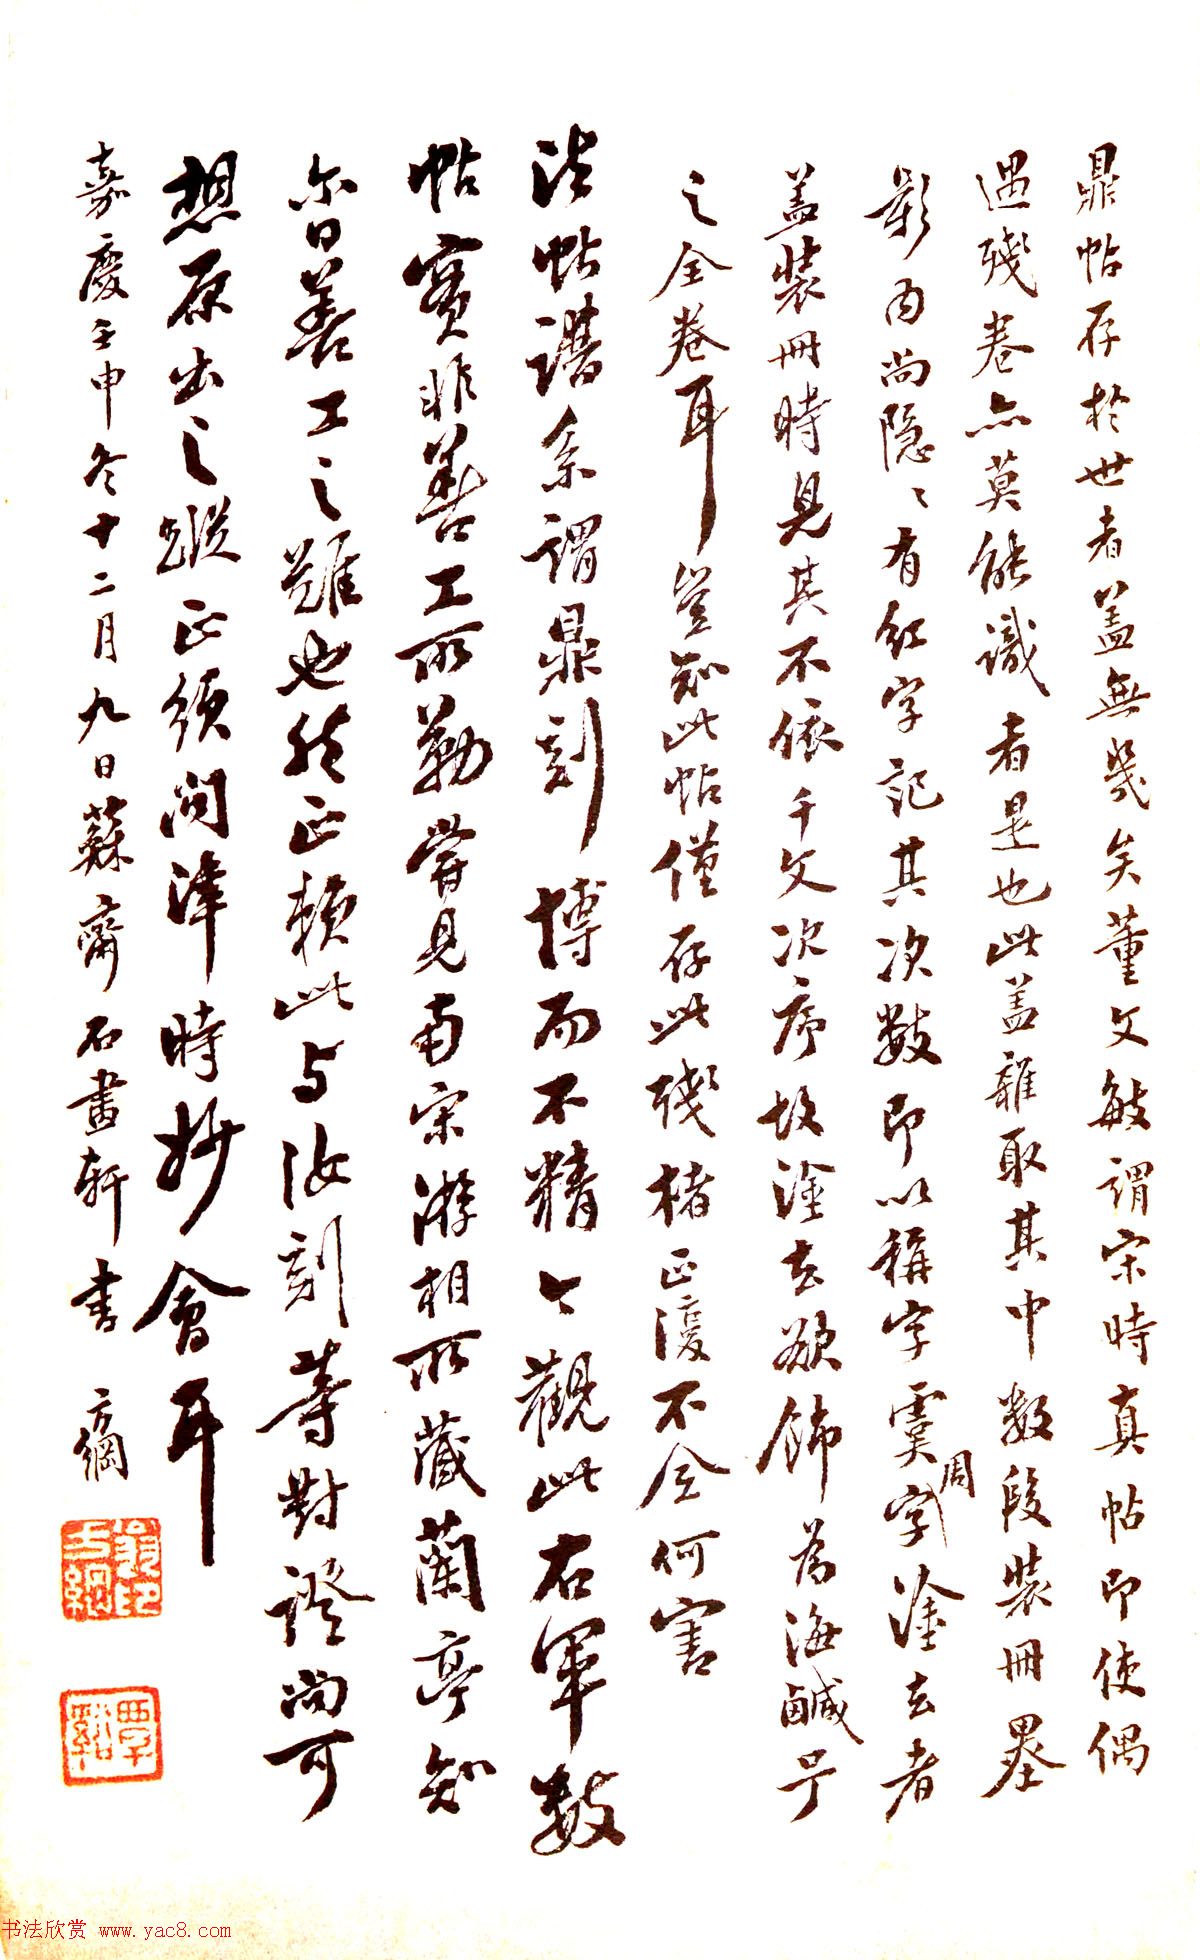 鼎帖存於世者蓋無幾矣董文敏謂宋時真帖即使偶
遇殘卷亦莫能識者是也此蓋雜取其中數段裝冊墨
影内尚隱隱有紅字記其次數即以稱字虞字周塗去者
蓋裝冊時見其不依千文次序故塗去欲飾為海鹹字
之全卷耳豈知此帖僅存此殘楮正復不全何害
法帖譜系謂鼎刻博而不精今觀此右軍數
帖實非善工所勒嘗見南宋游相所藏蘭亭知
尔日善工之難也然正賴此与汝刻等對證尚可
想原出之蹤正須問津時妙會耳
嘉慶壬申冬十二月九日蘇齋石畫軒書 方綱
翁方綱印
覃谿
书法欣赏 www.yac8.com